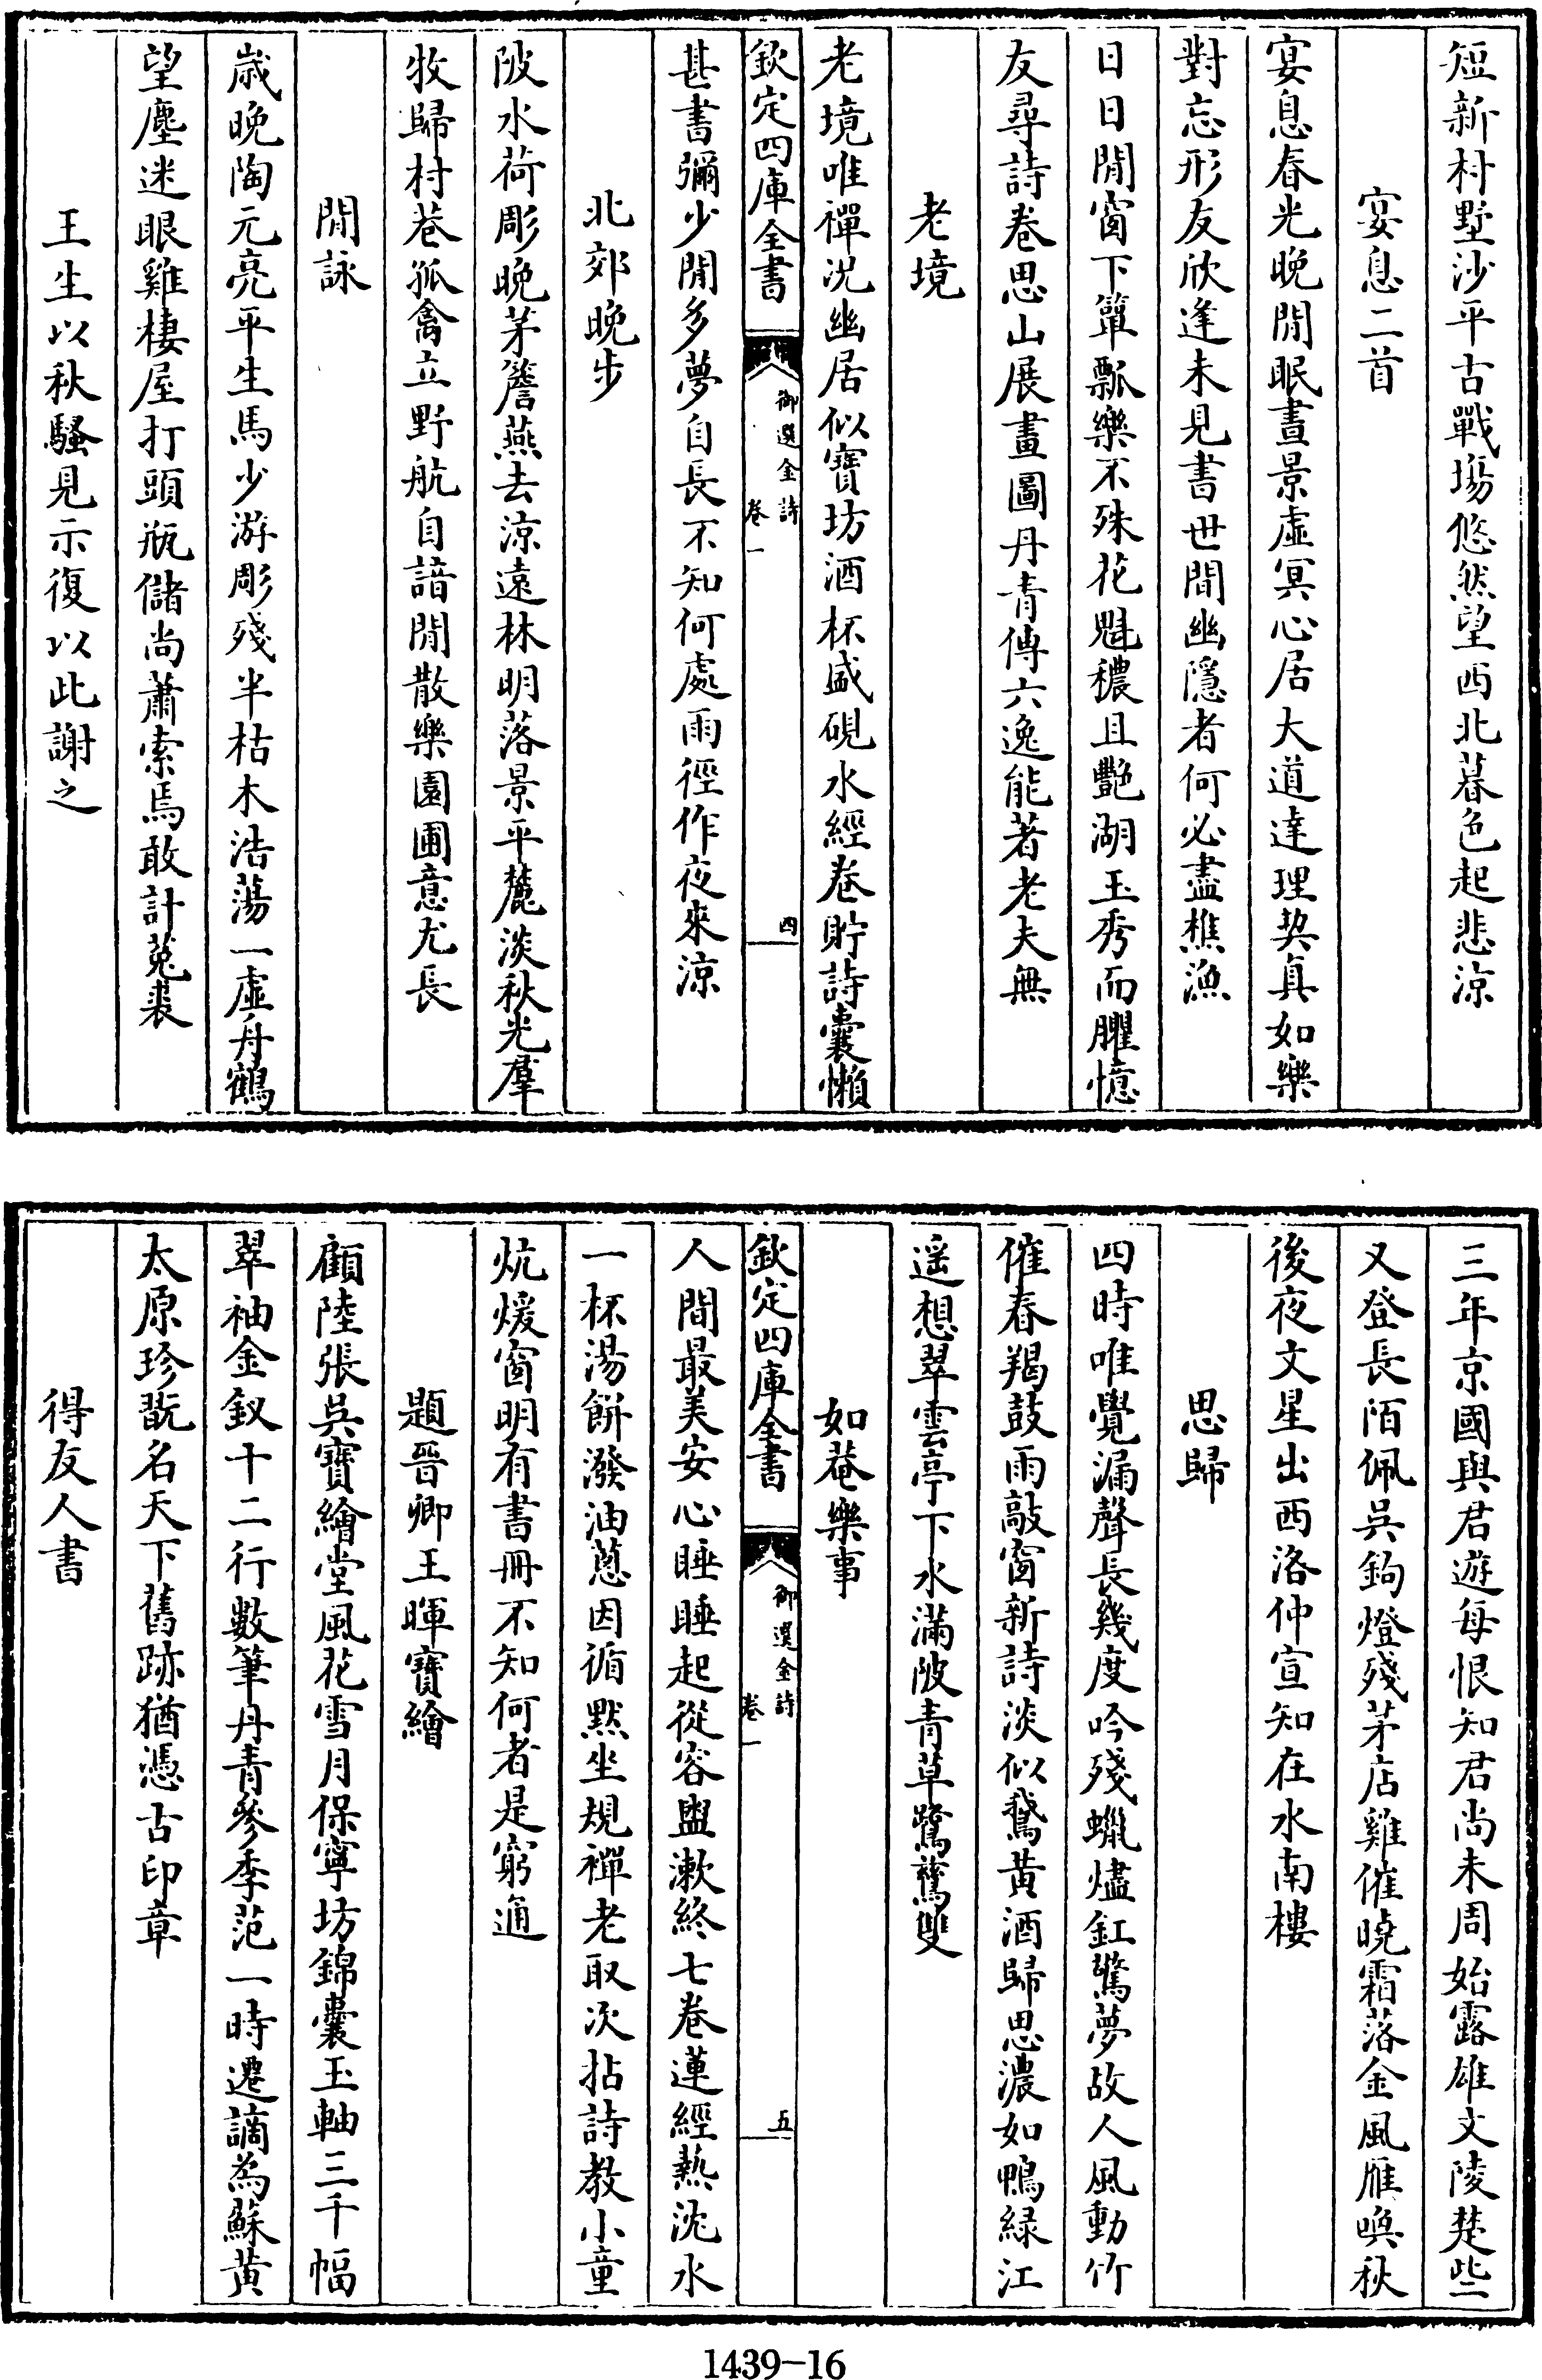 短新村墅沙平古戰塲悠然望西北暮色起悲涼
宴息二首
宴息春光晚閒眠晝景虛冥心居大道達理契真如樂
對忘形友欣逢未見書世間幽隱者何必盡樵漁
日日閒窗下簞瓢樂不殊花魁穠且艷湖玉秀而臞憶
友尋詩卷思山展畫圖丹青傳六逸能著老夫無
老境
老境唯禪況幽居似寶坊酒杯盛硯水經卷貯詩囊懶
欽定四庫全書
御選金詩
卷一
四
甚書彌少閒多夢自長不知何處雨徑作夜來涼
北郊晚步
陂水荷彫晚茅簷燕去涼遠林明落景平麓淡秋光羣
牧歸村巷孤禽立野航自諳閒散樂園圃意尤長
閒詠
歲晚陶元亮平生馬少游彫殘半枯木浩蕩一虛舟鶴
望塵迷眼雞棲屋打頭瓶儲尚蕭索焉敢計菟裘
王生以秋騷見示復以此謝之
三年京國與君遊每恨知君尚未周始露雄文陵楚些
又登長陌佩吳鉤燈殘茅店雞催曉霜落金風雁喚秋
後夜文星出西洛仲宣知在水南樓
思歸
四時唯覺漏聲長幾度吟殘蠟燼釭驚夢故人風動竹
催春羯鼓雨敲窗新詩淡似鵞黃酒歸思濃如鴨綠江
遥想翠雲亭下水滿陂青草鷺鷥雙
如菴樂事
欽定四庫全書
御選金詩
卷一
五
人間最美安心睡睡起從容盥漱終七卷蓮經熱沈水
一杯湯餅潑油蔥因循默坐規禪老取次拈詩教小童
炕煖窗明有書冊不知何者是窮通
題晉卿王暉寶繪
顧陸張吳寶繪堂風花雪月保寧坊錦囊玉軸三千幅
翠袖金釵十二行數筆丹青參季范一時遷謫為蘇黃
太原珍翫名天下舊跡猶憑古印章
得友人書
1439-16